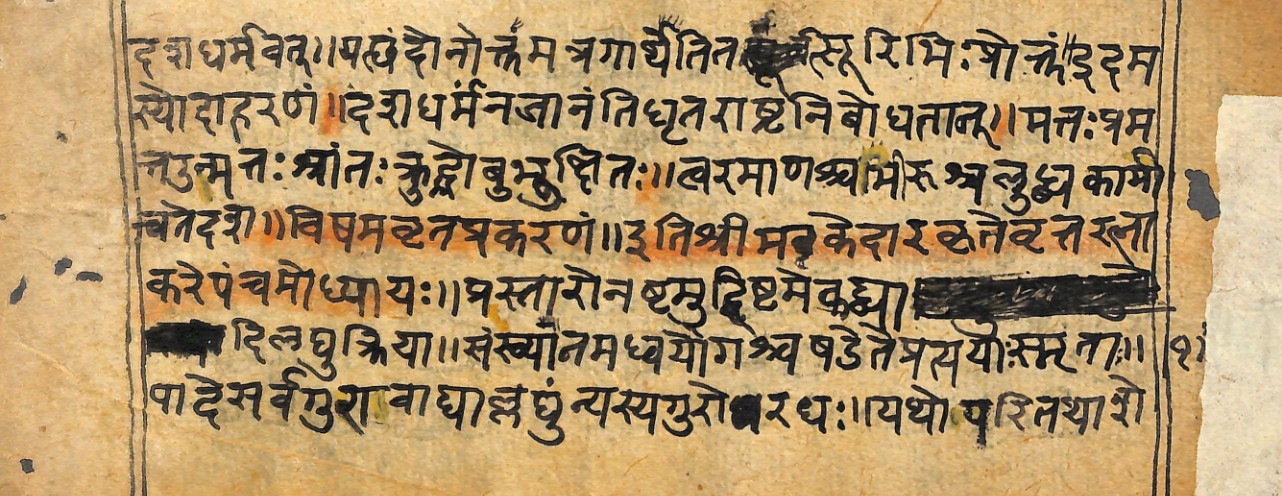 दशधर्मवत्॥यछंदोनोक्तंमत्रगाथेतित सूरिभिःप्रोक्तं॥इदम
स्योदाहरणं॥दशधर्मंनजानंतिधृतराष्ट्रनिबोधतात्॥मत्तःप्रम
त्तउन्मत्तःश्रांतःक्रुद्धोबुभुक्षितः॥त्वरमाणश्चभीरूश्चलुब्धकामी
चतेदश॥विषमवृतप्रकरणं॥इतिश्रीमत्केदारकृतेवृत्तरत्ना
करेपंचमोध्यायः॥प्रस्तारोनष्टमुद्दिष्टमेकद्ध्या
दिलघुक्रिया॥संख्यानमध्वयोगश्चषडेतेप्रत्ययाःस्मृताः॥
पादेसर्वगुरावाद्याल्लघुंन्यस्यगुरोरधः॥यथोपरितथाशे